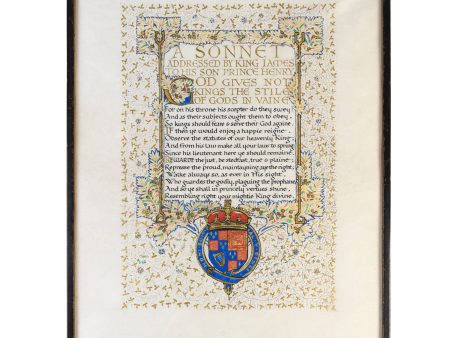 A SONNET
ADDRESSED BY KING JAMES
TO HIS SON PRINCE HENRY
GOD GIVES NOT
KINGS THE STILE
OF GODS IN VAINE
For on his throne his scepter do they swey:
And as their subjects ought them to obey,
So kings should feare & serve their God againe.
If then ye would enjoy a happie reigne
Observe the statutes of our heavenly King;
And from his law make all your laws to spring
Since his lieutenant here ye should remaine.
REWARDE the just, be stedfast, true & plaine:
Represse the proud, maintayning aye the right;
Walke always so, as ever in His sight
Who guardes the godly, plaguing the prophane
And so ye shall in princely vertues shine,
Resembling right your mightie King divine.